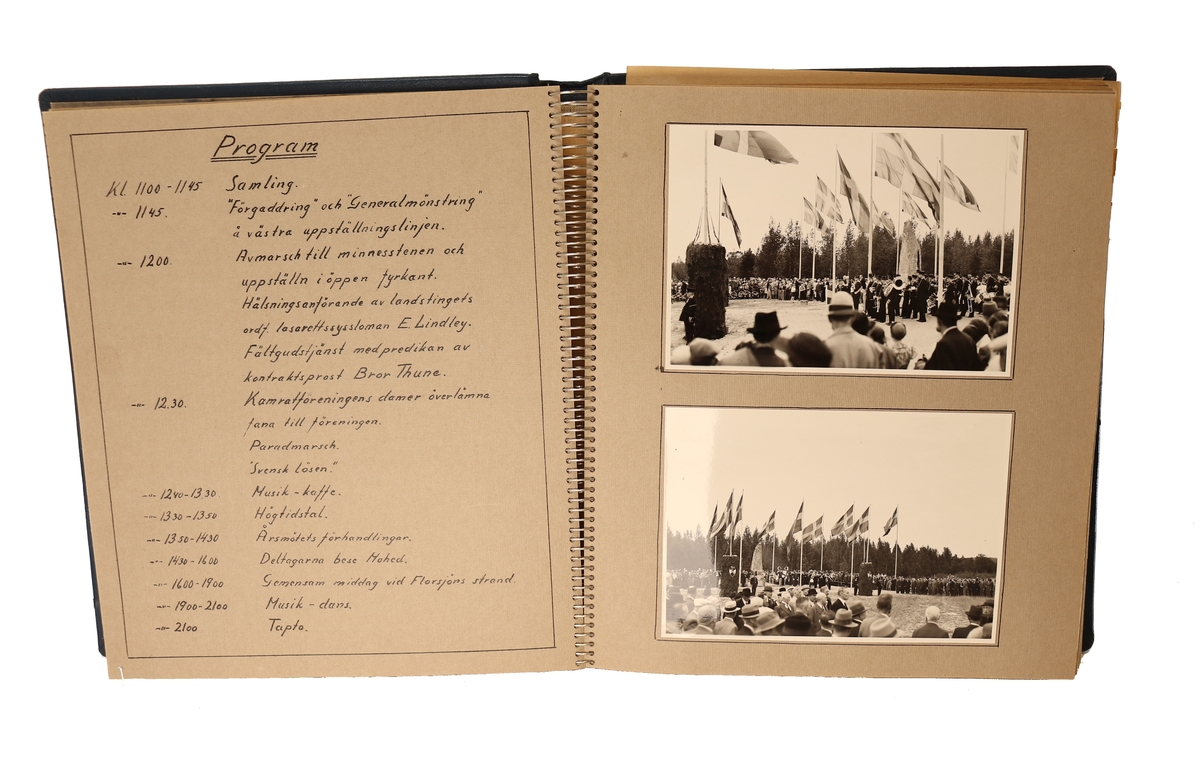 Program
Kl 1100 - 1145 Samling.
-"- 1145. "Förgaddring" och "Generalmönstring"
å västra uppställningslinjen.
-"- 1200. Avmarsch till minnesstenen och
uppställn i öppen fyrkant.
Hälsningsanförande av landstingets
ordf. lasarettssyssloman E. Lindley.
Fältgudstjänst med predikan av
kontraktsprost Bror Thune.
-"- 12.30. Kamratföreningens damer överlämna
fana till föreningen.
Paradmarsch.
"Svensk Lösen."
-"- 1240-13.30 Musik - kaffe.
-"- 1330 - 1350 Högtidstal.
-"- 1350 - 1430 Årsmötets förhandlingar.
-"- 1430 - 1600 Deltagarna bese Mohed.
-"- 1600 - 1900 Gemensam middag vid Florsjöns strand.
-"- 1900 - 2100 Musik - dans.
-"- 2100 Tapto.